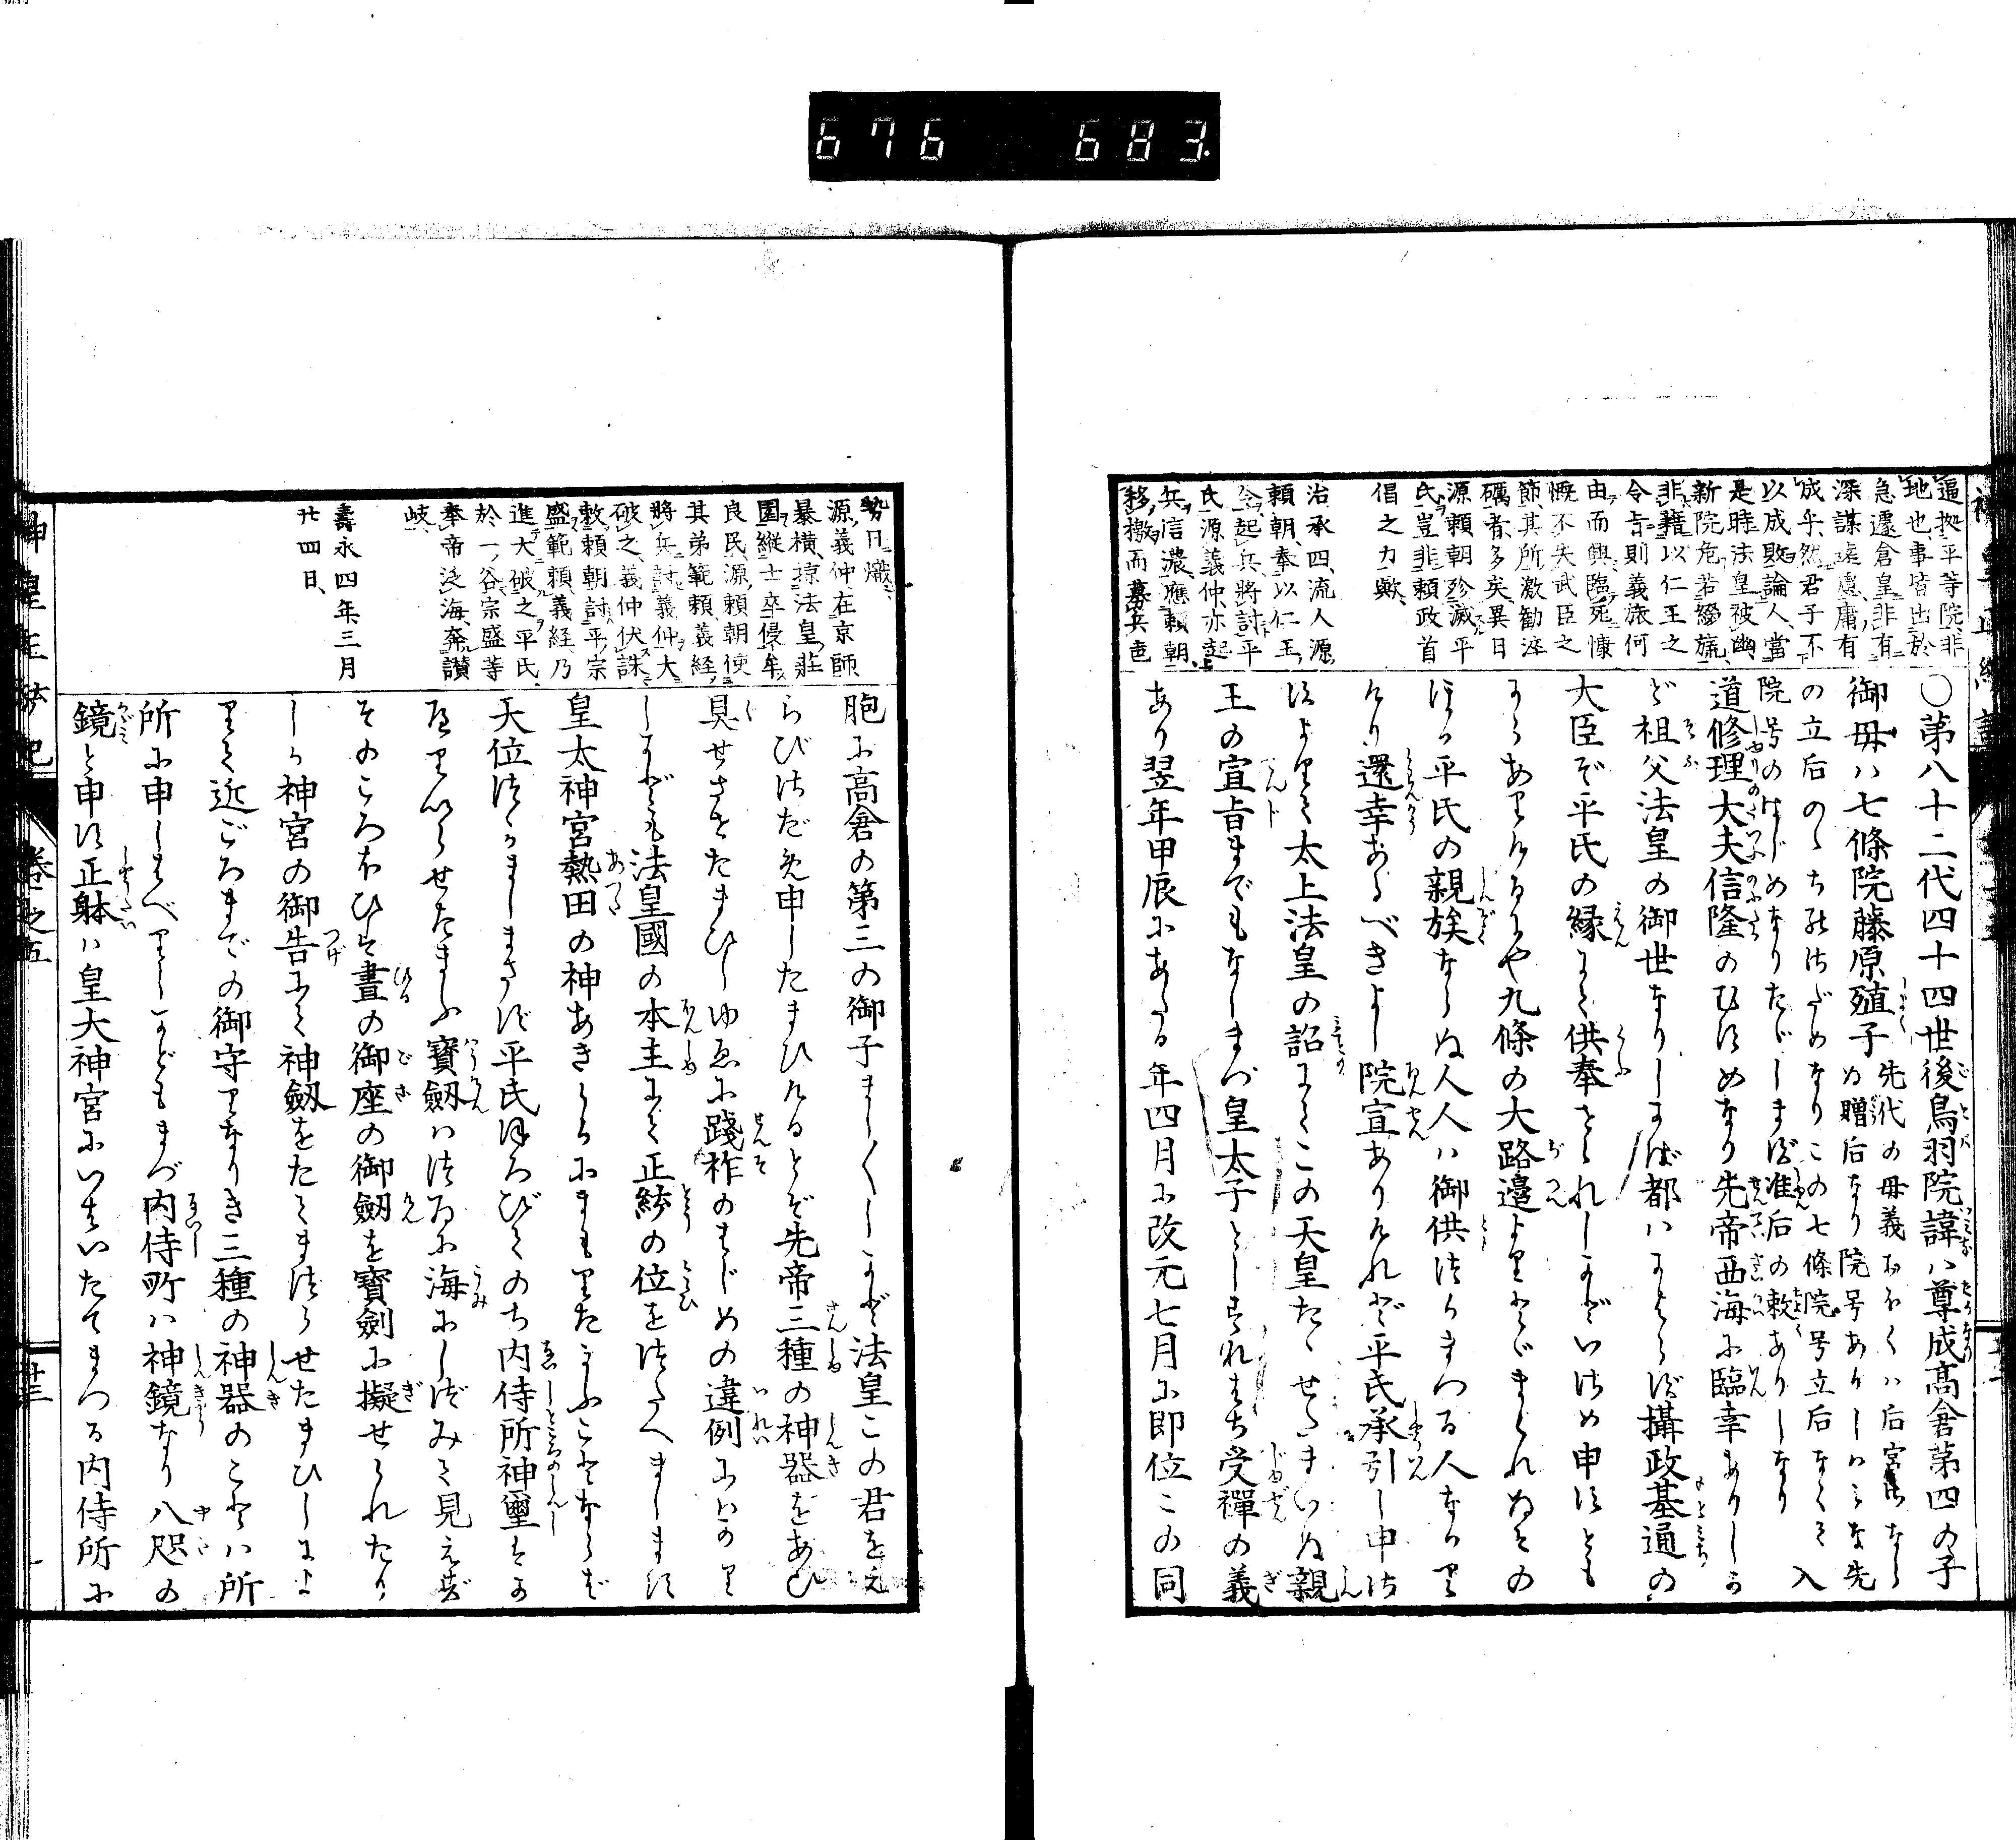 676 683.
逼拠平等院非
地也事皆出於
急遷倉皇非有
深謀遠慮庸有
成乎然君子不
以成敗論人當
是時法皇被幽
新院危若綴旒
非藉以仁王之
令旨則義旅何
由而興臨死慷
慨不失武臣之
節其所激勧淬
礪者多矣異日
源頼朝殄滅平
氏豈非頼政首
倡之力歟
治承四流人源
頼朝奉以仁王
令起兵將討平
氏源義仲亦起
兵信濃應頼朝
移檄而募兵也
〇第八十二代四十四世後鳥羽院諱ハ尊成高倉第四の子
御母ハ七條院藤原殖子
先代の母義おほくハ后宮ならぬハ贈后なり院号ありしハミな先
の立后のゝちのさだめなりこの七條院号立后なくそ
院号のはじめなりたゞしまづ准后の敕ありしなり
入
道修理大夫信隆のむすめなり先帝西海に臨幸ありしか
ど祖父法皇の御世なりしかば都ハかはらず攝政基通の
大臣ぞ平氏の縁にて供奉せられしかどいさめ申すとも
がらありけるにや九條の大路邉よりとゞまられぬその
ほか平氏の親族ならぬ人人ハ御供つかまつる人なかり
けり還幸あるべきよし院宣ありけれど平氏承引し申さ
ずよりて太上法皇の詔にてこの天皇たゝせたまいぬ親
王の宣旨までもなしまづ皇太子としすなはち受禪の義
あり翌年甲辰にあたる年四月に改元七月に即位この同
勢日熾
源義仲在京師
暴横掠法皇莊
園縦士卒侵牟
良民源頼朝使
其弟範頼義経
將兵討義仲大
破之義仲伏誅
敕頼朝討平宗
盛範頼義経乃
進大破之平氏
於一谷宗盛等
奉帝泛海奔讃
岐
壽永四年三月
廿四日
胞に高倉の第三の御子まし〳〵しかど法皇この君をえ
らびさだめ申したまひけるとぞ先帝三種の神器をあひ
具せさせたまひしゆゑに踐祚のはじめの違例にハのり
しかども法皇國の本主にて正統の位をつたへまします
皇太神宮熱田の神あきらかにまもりたまふことならば
天位つゝがましまさず平氏ほろびてのち内侍所神璽ハか
へりいらせたまふ寳劔ハつゐに海にしづみて見えず
そのころおひハ晝の御座の御劔を寳劍に擬せられたり
しか神宮の御告にて神劔をたてまつらせたまひしによ
りて近ごろまでの御守りなりき三種の神器のことハ所
所に申しはべりしかどもまづ内侍所ハ神鏡なり八咫の
鏡と申す正躰ハ皇大神宮にいはいたてまつる内侍所に
神皇正統記
卷之五
廿三